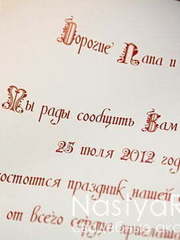 Дорогие Папа и
Мы рады сообщить Вам
25 июля 2012 год
состоится праздник нашей
от всего сердца приглаша
Nastya